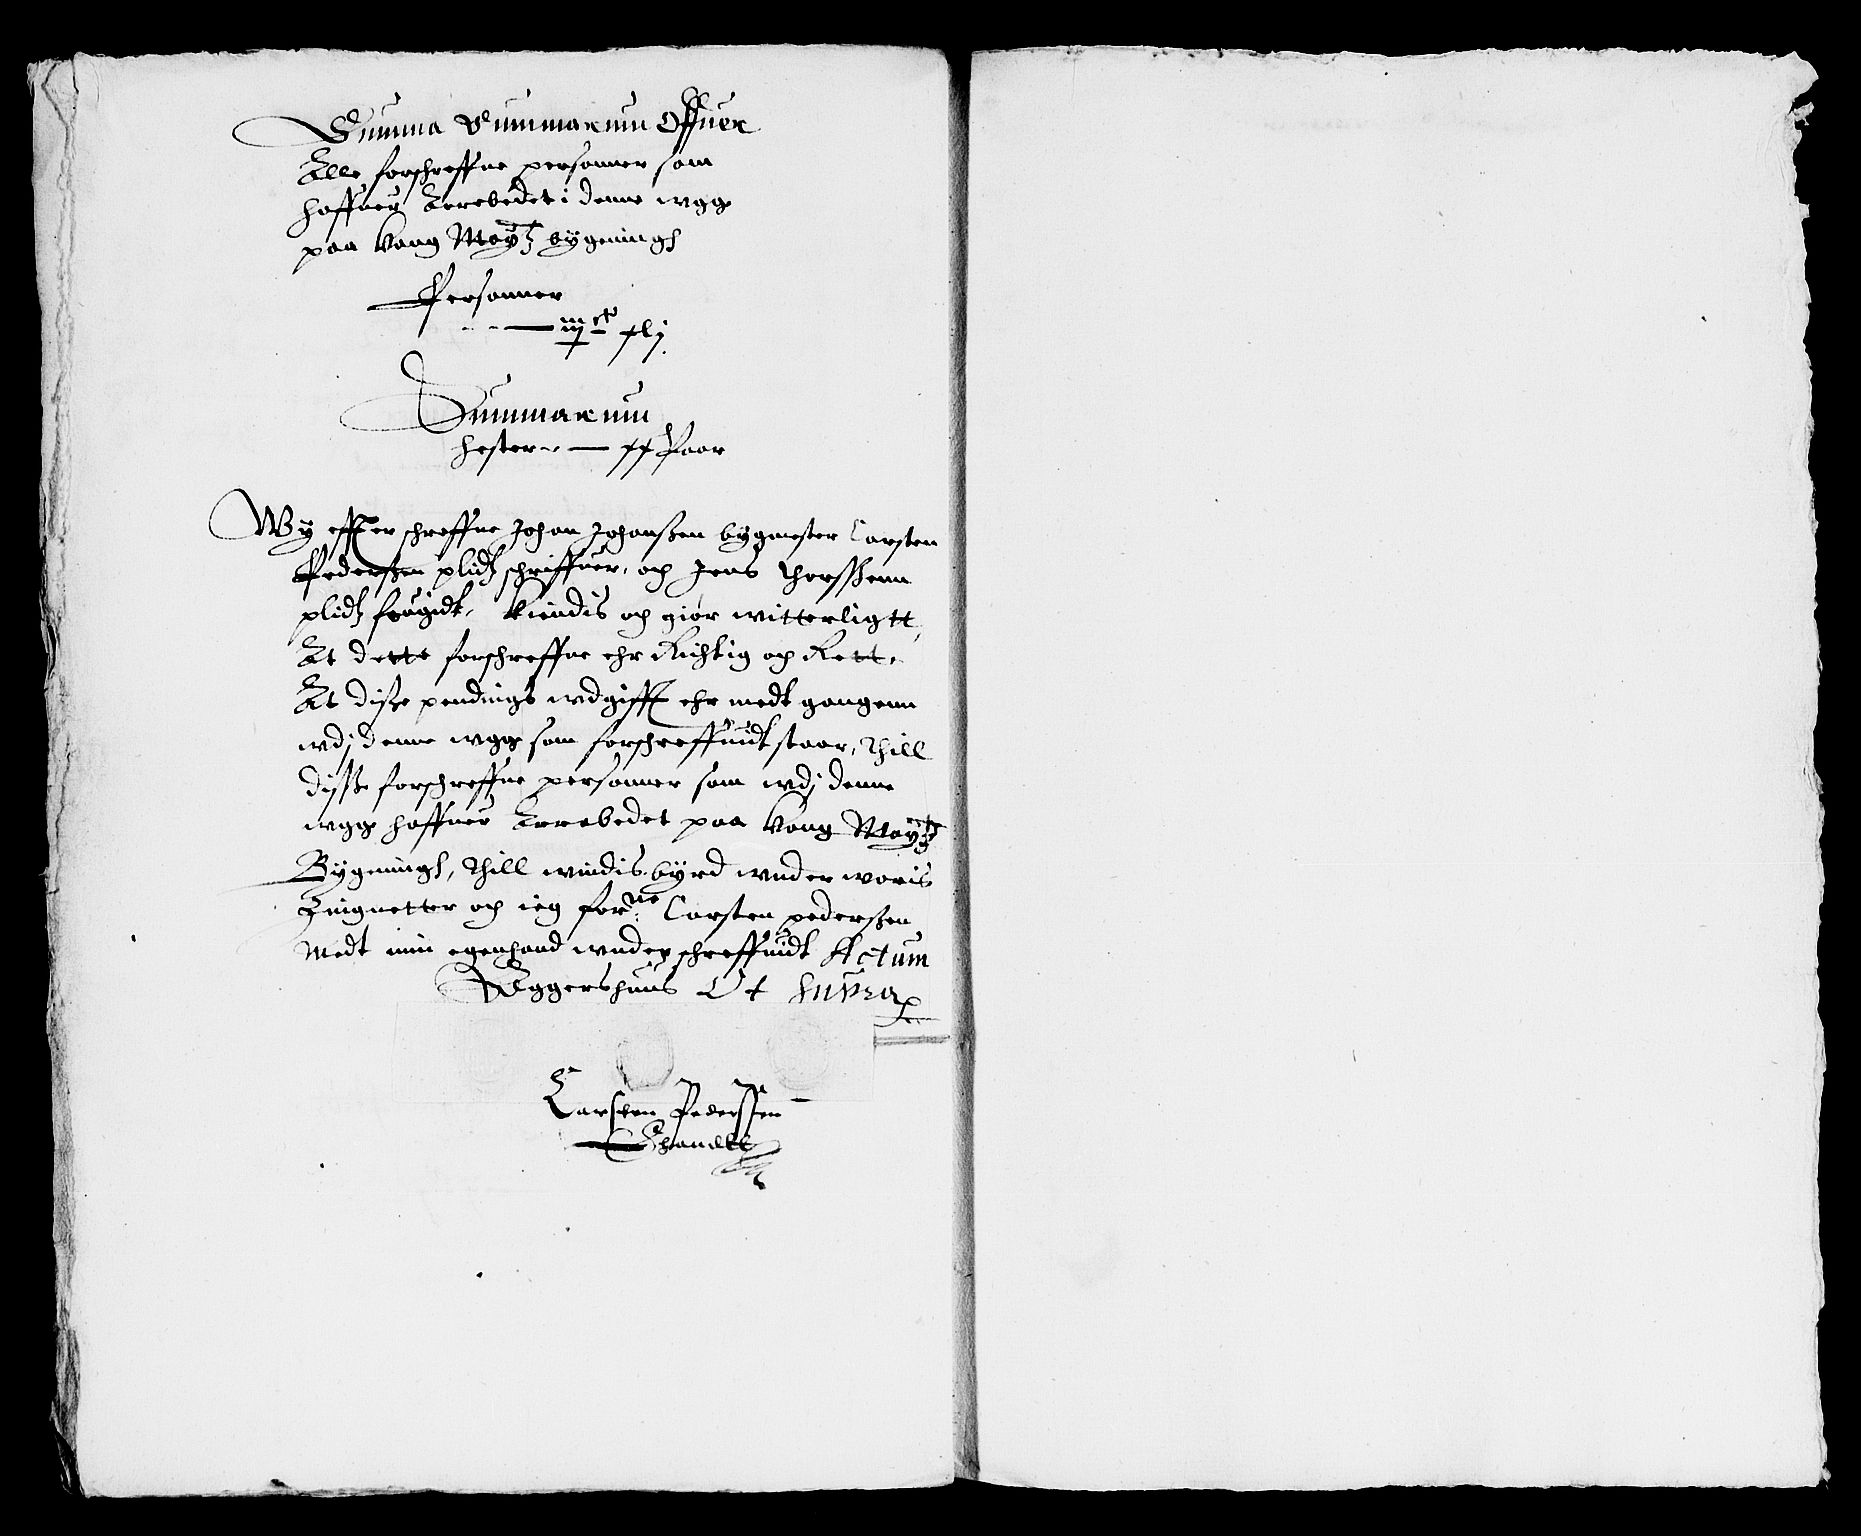 Summa Summarum Offuer
Alle forschreffne personner som
haffuer Arrebedet i denne wgge
paa kong Maytz bygningh
Personner
iiijct xlj
Summarum
hester — xx Paar
Wy effter schreffne Johan Johanßen bygmester Carsten
Pederßen plidtz schriffuer, och Jens Thorßßenn
plidtz fougidt, kiendis och giør witterligtt,
At dette forschreffne ehr Richtig och Rett,
At diße pendinge wdgifft ehr medt gangenn
wdj denne wgge som forschreffuidt staar, Thill
disße forschreffne personner som wdj denne
wgge haffuer Arrebedet paa kong Maytz
Bygningh, Thill windis byrd wnder woris
Zingnetter och ieg forne Carsten pederßen
Medt min egenhand wnderschreffuidt Actum
Aggershuus Ut supra
Carsten Pederssen
Ehandtt